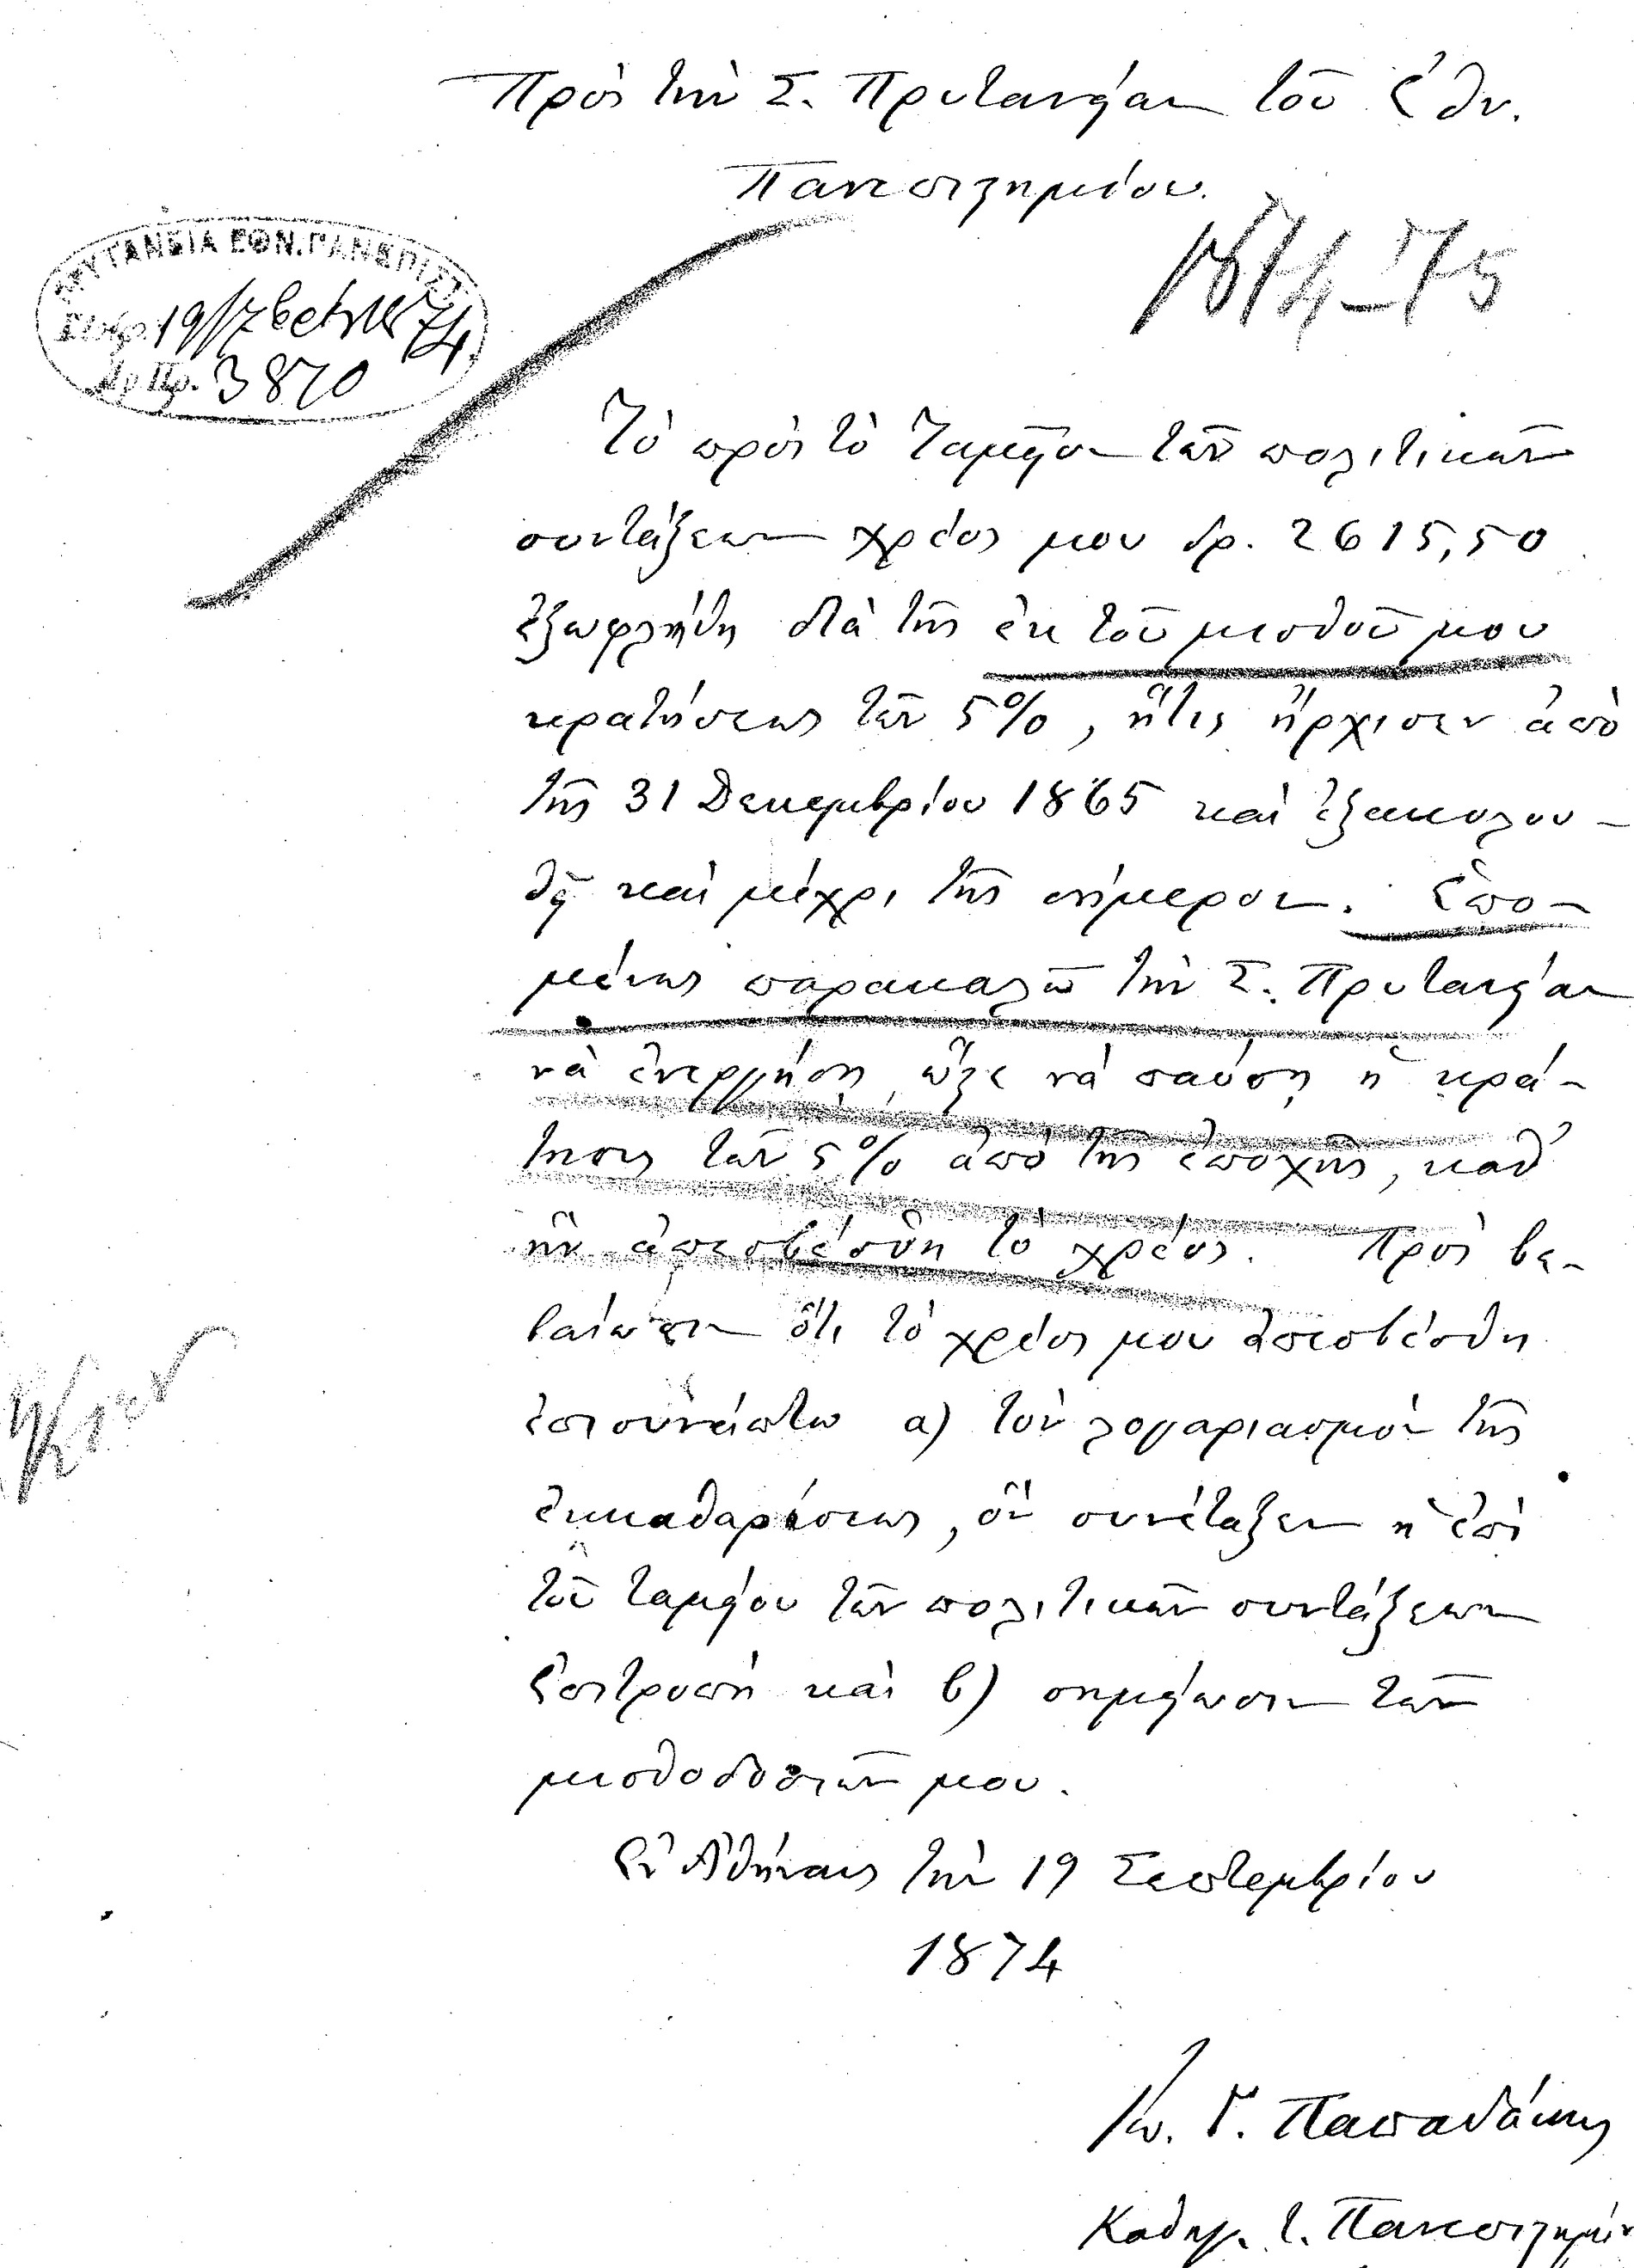 Πρὸς τὴν Σ. Πρυτανείαν τοῦ Ἐθν.
Πανεπιστημίου.
1874-75
ΠΡΥΤΑΝΕΙΑ ΕΘΝ. ΠΑΝΕΠΙΣΤ.
19/7βρίου 74
Ἀρ. Πρ. 3870
Τὸ πρὸς τὸ Ταμεῖον τῶν πολιτικῶν
συντάξεων χρέος μου δρ. 2615,50
ἐξωφλήθη διὰ τῆς ἐκ τοῦ μισθοῦ μου
κρατήσεως τῶν 5%, ἥτις ἤρχισεν ἀπὸ
τῆς 31 Δεκεμβρίου 1865 καὶ ἐξακολου-
θεῖ καὶ μέχρι τῆς σήμερον. Ἑπο-
μένως παρακαλῶ τὴν Σ. Πρυτανείαν
νὰ ἐνεργήσῃ ὥστε νὰ παύσῃ ἡ κρά-
τησις τῶν 5% ἀπὸ τῆς ἐποχῆς, καθ'
ἣν ἀπεσβέσθη τὸ χρέος. Πρὸς βε-
βαίωσιν ὅτι τὸ χρέος μου ἀπεσβέσθη
ἐπισυνάπτω α) τὸν λογαριασμὸν τῆς
ἐκκαθαρίσεως, ὃν συνέταξεν ἡ ἐπὶ
τοῦ ταμείου τῶν πολιτικῶν συντάξεων
Ἐπιτροπὴ καὶ β) σημείωσιν τῶν
μισθοδοσιῶν μου.
Ἐν Ἀθήναις τὴν 19 Σεπτεμβρίου
1874
Ἰω. Γ. Παπαδάκης
Καθηγ. τ. Πανεπιστημίου